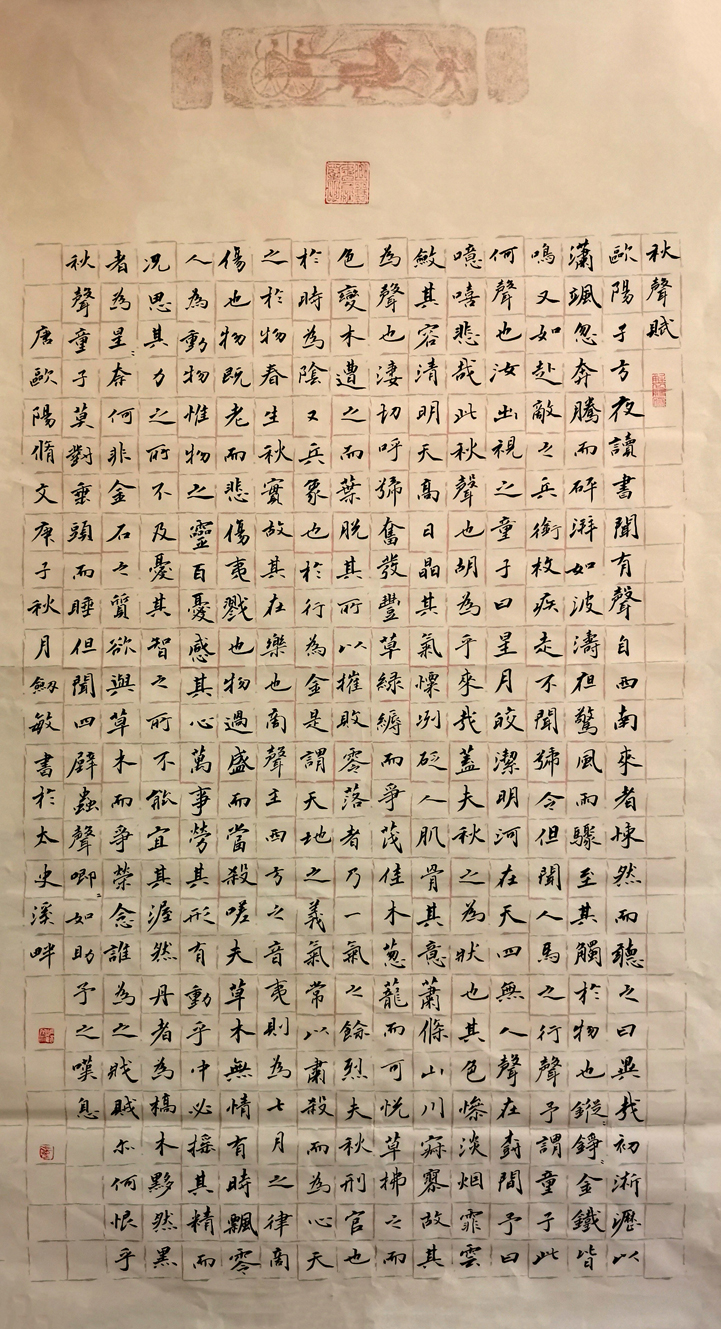 秋聲賦
歐陽子方夜讀書聞有聲自西南來者悚然而聽之曰異哉初淅瀝以
瀟颯忽奔騰而砰湃如波濤夜驚風雨驟至其觸於物也鏦〻錚〻金鐵皆
鳴又如赴敵之兵銜枚疾走不聞號令但聞人馬之行聲予謂童子此
何聲也汝出視之童子曰星月皎潔明河在天四無人聲在樹間予曰
噫嘻悲哉此秋聲也胡為乎來哉蓋夫秋之為狀也其色慘淡烟霏雲
斂其容清明天高日晶其氣慄冽砭人肌骨其意蕭條山川寂寥故其
為聲也淒切呼號奮發豐草綠縟而爭茂佳木葱蘢而可悅草拂之而
色變木遭之而葉脫其所以摧敗零落者乃一氣之餘烈夫秋刑官也
於時為陰又兵象也於行為金是謂天地之義氣常以肅殺而為心天
之於物春生秋實故其在樂也商聲主西方之音夷則為七月之律商
傷也物既老而悲傷夷戮也物過盛而當殺嗟夫草木無情有時飄零
人為動物惟物之靈百憂感其心萬事勞其形有動乎中必搖其精而
況思其力之所不及憂其智之所不能宜其渥然丹者為槁木黟然黑
者為星〻奈何非金石之質欲與草木而爭榮念誰為之戕賊亦何恨乎
秋聲童子莫對垂頭而睡但聞四壁蟲聲唧〻如助予之嘆息
唐歐陽脩文庚子秋月劍敏書於太史溪畔